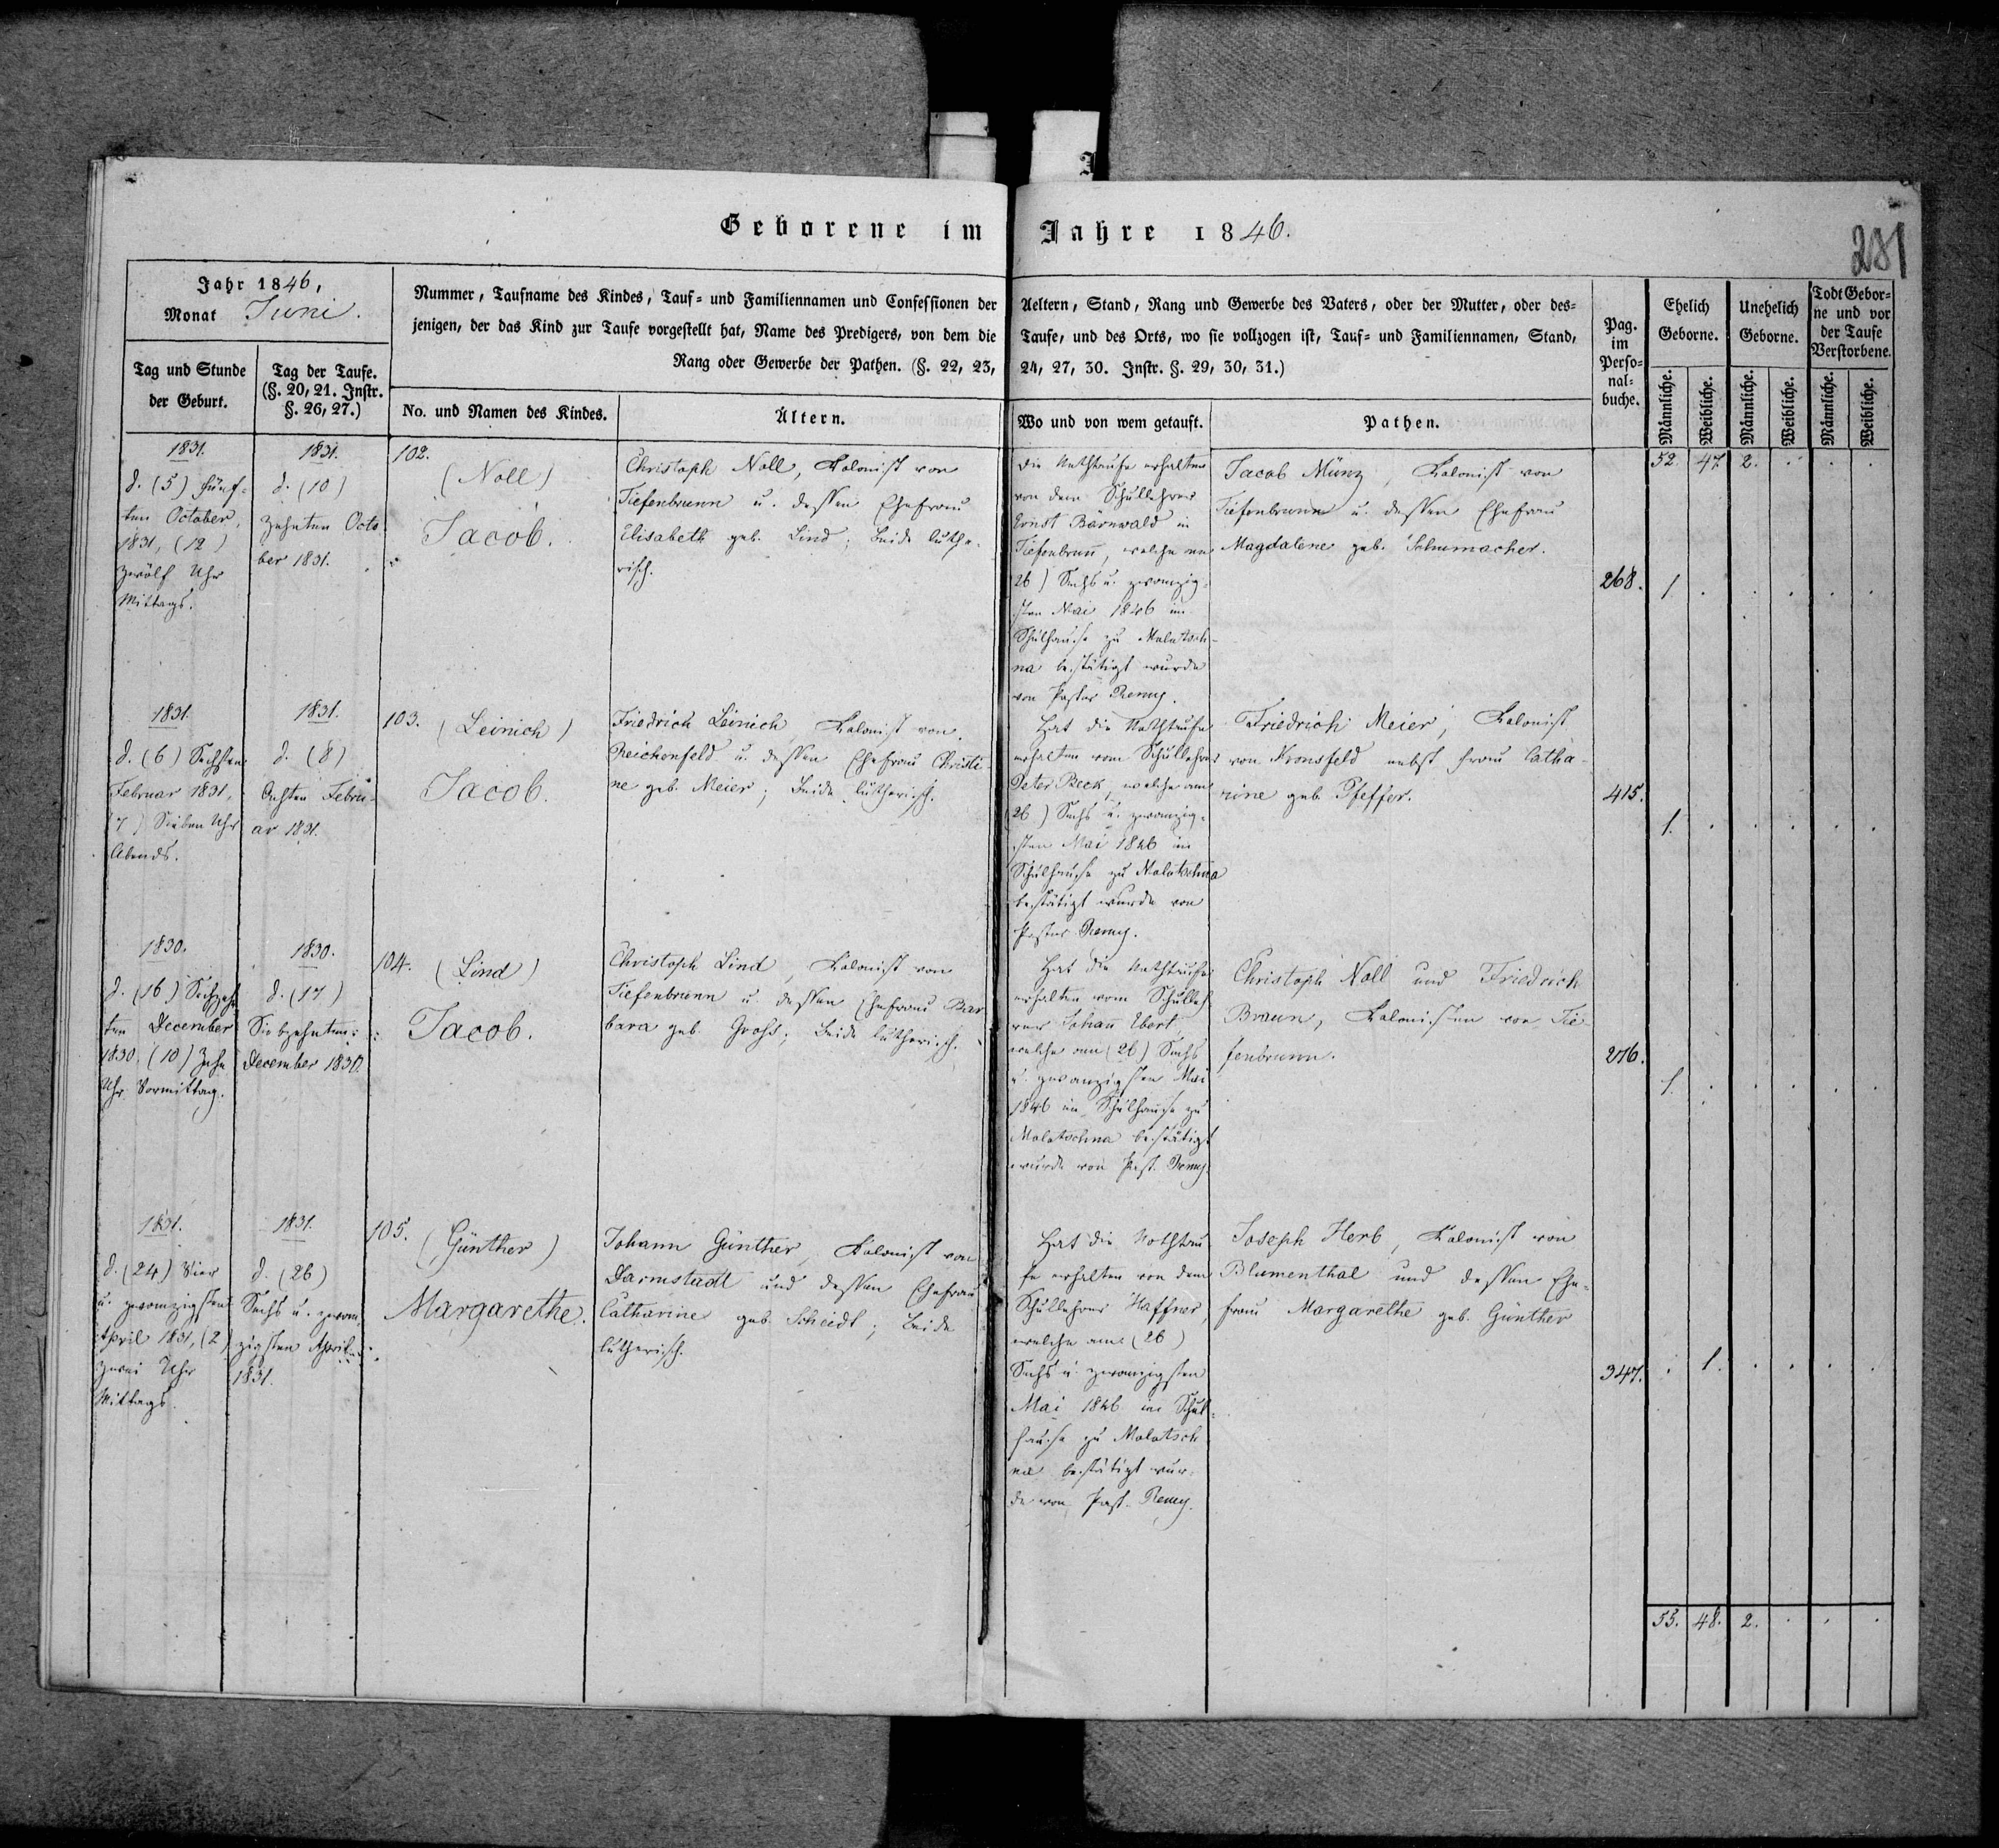 Geborene im Jahre 1846.
281
Jahr 1846,
Monat Juni.
Tag und Stunde
der Geburt.
Tag der Taufe.
(§. 20, 21. Instr.
§. 26, 27.)
Nummer, Taufname des Kindes, Tauf- und Familiennamen und Confessionen der Aeltern, Stand, Rang und Gewerbe des Vaters, oder der Mutter, oder des-
jenigen, der das Kind zur Taufe vorgestellt hat, Name des Predigers, von dem die Taufe, und des Orts, wo sie vollzogen ist, Tauf- und Familiennamen, Stand,
Rang oder Gewerbe der Pathen. (§. 22, 23, 24, 27, 30. Instr. §. 29, 30, 31.)
No. und Namen des Kindes.
Ältern.
Wo und von wem getauft.
Pathen.
Pag.
im
Perso-
nal-
buche.
Ehelich
Geborne.
Unehelich
Geborne.
Todt Gebor-
ne und vor
der Taufe
Verstorbene.
Männliche.
Weibliche.
Männliche.
Weibliche.
Männliche.
Weibliche.
52. 47. 2. . . .
1831.
d. (5) fünf-
ten October,
1831, (12)
zwölf Uhr
Mittags.
1831.
d. (10)
zehnten Octo
ber 1831.
102.
(Noll)
Jacob.
Christoph Noll, Kolonist von
Tiefenbrunn u. dessen Ehefrau
Elisabeth geb. Lind; beide luthe-
risch.
Die Nothtaufe erhalten
von dem Schullehrer
Ernst Bärwald in
Tiefenbrunn, welche am
26) Sechs u. zwanzig-
sten Mai 1846 im
Schulhause zu Molotsch-
na bestätigt wurde
von Pastor Remy.
Jacob Münz, Kolonist von
Tiefenbrunn u. dessen Ehefrau
Magdalene geb. Schumacher.
268. 1 . . . . .
1831.
d. (6) Sechsten
Februar 1831,
7) Sieben Uhr
Abends.
1831.
d. (8)
Achten Febru-
ar 1831.
103.
(Leinich)
Jacob.
Friedrich Leinich, Kolonist von
Reichenfeld u. dessen Ehefrau Christi-
ne geb. Meier; beide lutherisch.
Hat die Nothtaufe
erhalten vom Schullehrer
Peter Beck, welche am
(26) Sechs u. zwanzig-
sten Mai 1846 im
Schulhause zu Molotschna
bestätigt wurde von
Pastor Remy.
Friedrich Meier, Kolonist
von Kronsfeld nebst Frau Catha-
rine geb. Pfeffer.
415. 1. . . . . .
1830.
d. (16) Sechzehn
ten December
1830. (10) Zehn
Uhr Vormittag.
1830.
d. (17)
Siebzehnten
December 1830.
104.
(Lind)
Jacob.
Christoph Lind, Kolonist von
Tiefenbrunn u. dessen Ehefrau Bar
bara geb. Grohs; beide lutherisch.
Hat die Nothtaufe
erhalten vom Schulleh
rer Johann Ebert,
welche am (26) Sechs
u. zwanzigsten Mai
1846 im Schulhause zu
Molotschna bestätigt
wurde von Past. Remy.
Christoph Noll und Friedrich
Braun, Kolonisten von Tie
fenbrunn.
276. 1. . . . . .
1831.
d. (24) Vier
u. zwanzigsten
April 1831, (2)
zwei Uhr
Mittags.
1831.
d. (26)
Sechs u. zwan
zigsten April
1831.
105.
(Günther)
Margarethe.
Johann Günther, Kolonist von
Darmstadt und dessen Ehefrau
Catharine geb. Scheidt; beide
lutherisch.
Hat die Nothtau
fe erhalten von dem
Schullehrer Haffner,
welche am (26)
Sechs u. zwanzigsten
Mai 1846 im Schul-
hause zu Molotsch
na bestätigt wur-
de von Past. Remy.
Joseph Herb, Kolonist von
Blumenthal und dessen Ehe-
frau Margarethe geb. Günther
347. . 1. . . . .
55. 48. 2. . . .